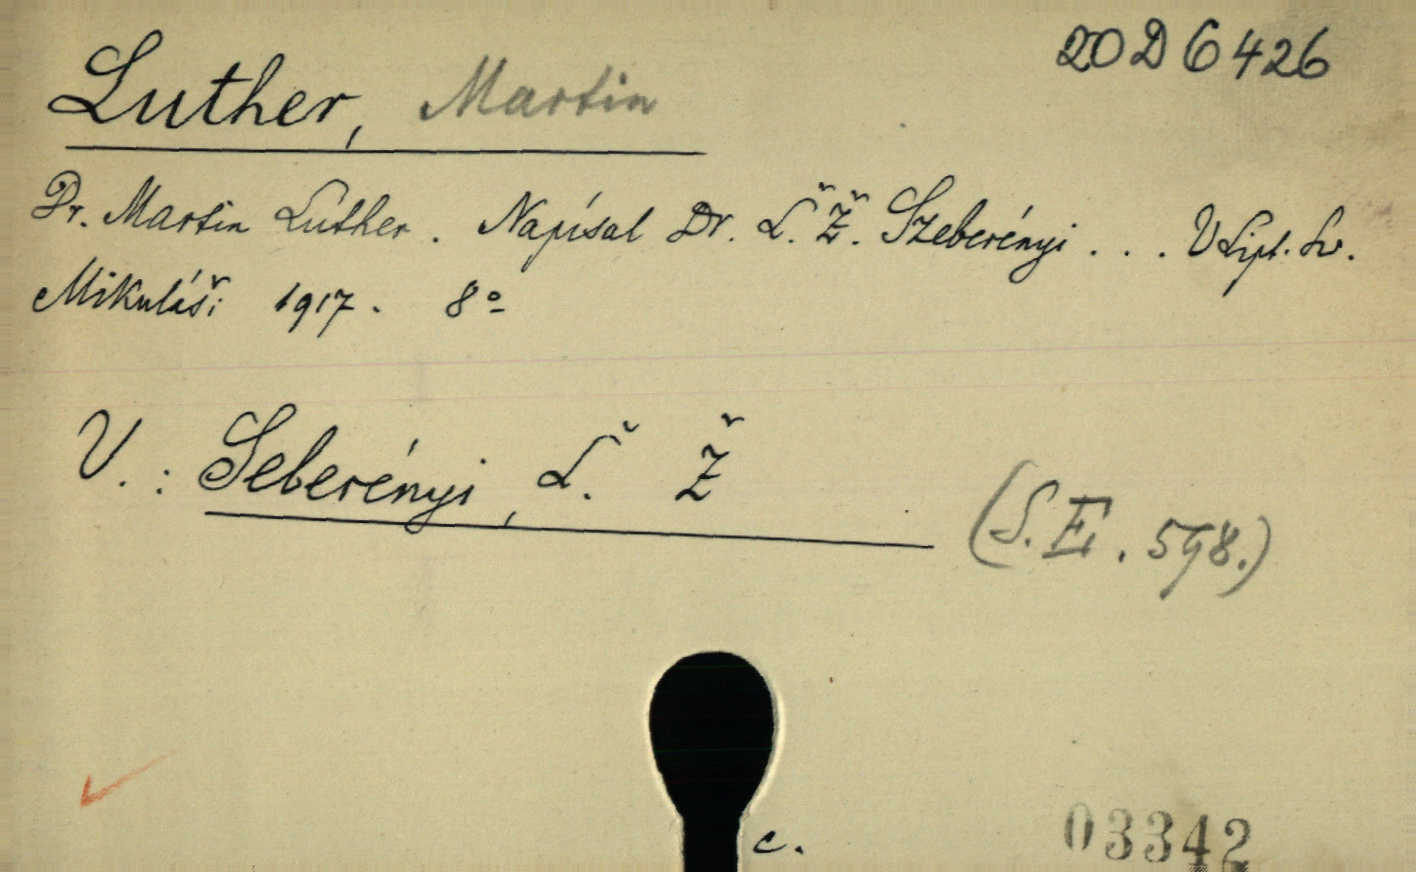 20 D 6426
Luther, Martin
Dr. Martin Luther. Napísal Dr. Ľ. Ž. Szeberényi... V Lipt. Sv.
Mikuláši 1917. 8º
V.: Seberényi, Ľ. Ž
(S. E. 598.)
c.
03342